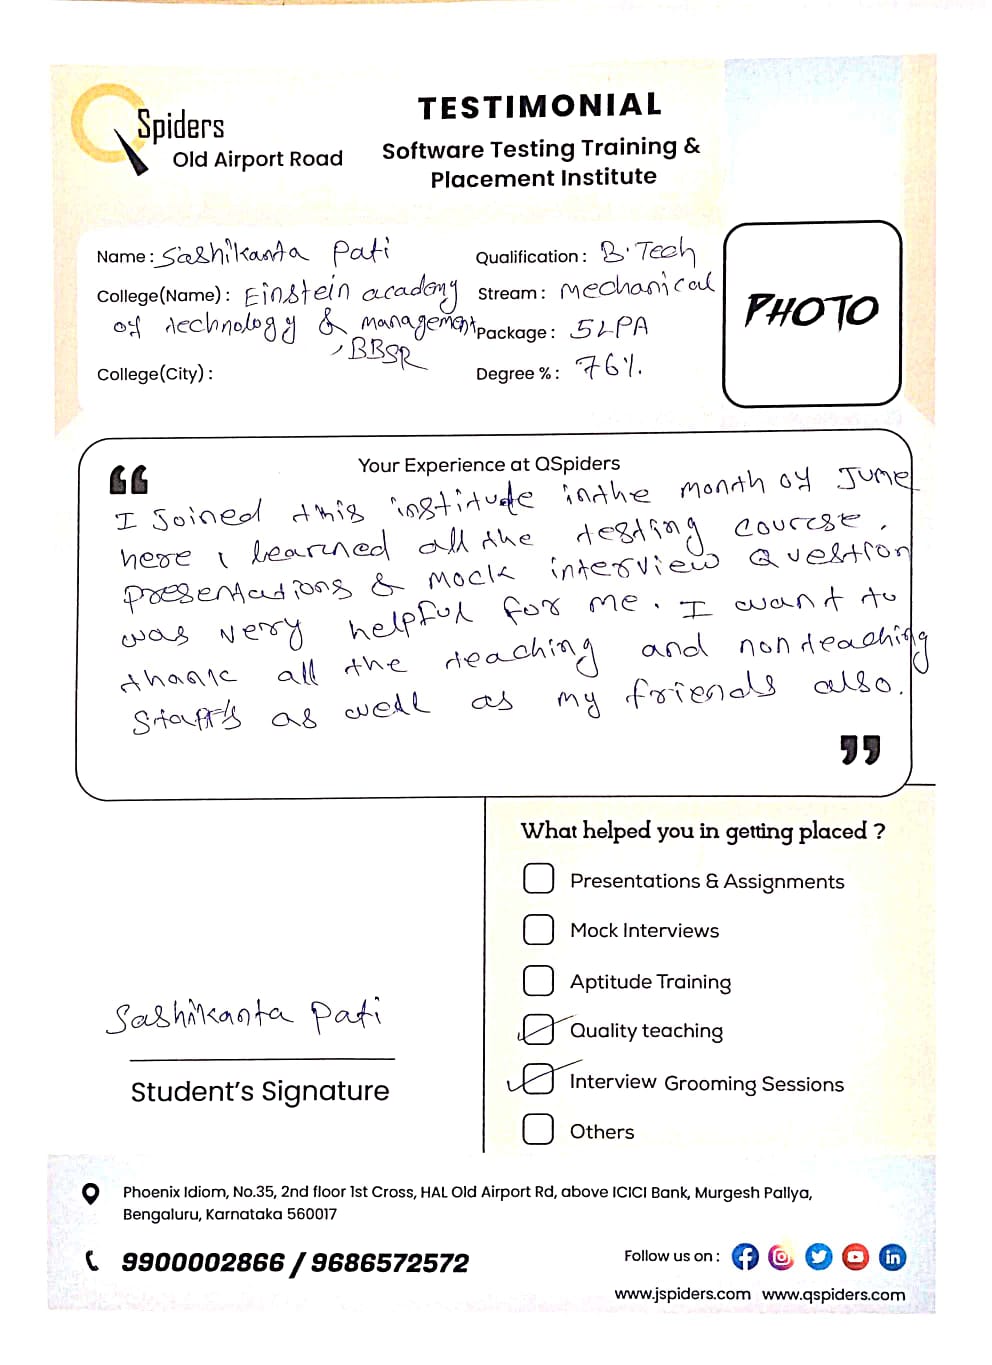 Spiders
Old Airport Road
TESTIMONIAL
Software Testing Training &
Placement Institute
Name : Sashikanta Pati
Qualification : B.Tech
College(Name) : Einstein academy
Stream : Mechanical
of technology & management
Package : 5LPA
, BBSR
College(City) :
Degree % : 76%.
PHOTO
Your Experience at QSpiders
I Joined this institute inthe month of June
here i learned all the testing course.
presentations & mock interview Question
was very helpful for me. I want to
thank all the teaching and non teaching
staff's as well as my friends also.
What helped you in getting placed ?
Presentations & Assignments
Mock Interviews
Aptitude Training
Quality teaching
Interview Grooming Sessions
Others
Sashikanta Pati
Student's Signature
Phoenix Idiom, No.35, 2nd floor 1st Cross, HAL Old Airport Rd, above ICICI Bank, Murgesh Pallya,
Bengaluru, Karnataka 560017
9900002866 / 9686572572
Follow us on :
www.jspiders.com www.qspiders.com